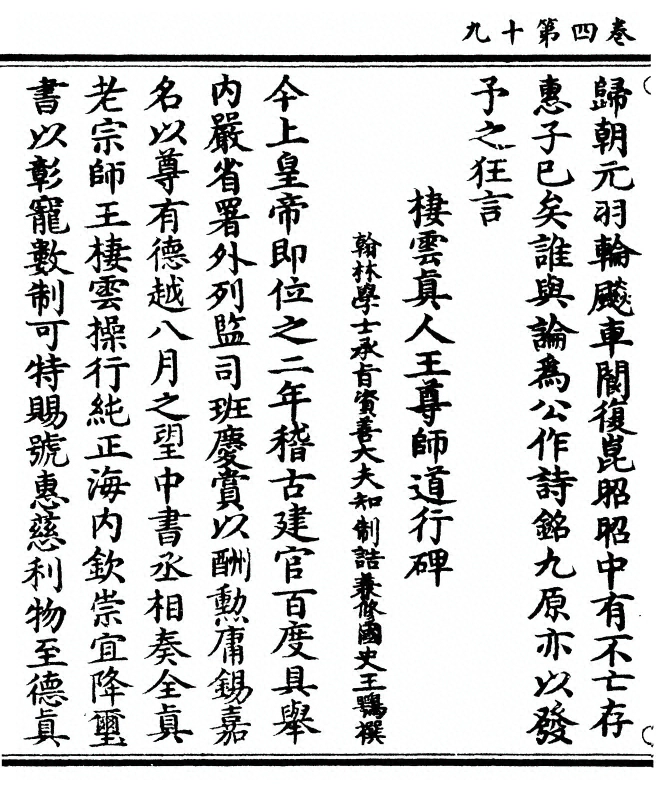 卷四第十九
歸朝元羽輪飈車閬復崑昭昭中有不亡存
惠子已矣誰與論為公作詩銘九原亦以發
予之狂言
棲雲真人王尊師道行碑
翰林學士承旨資善大夫知制誥兼修國史王鶚撰
今上皇帝即位之二年稽古建官百度具舉
內嚴省署外列監司班慶賞以酬勳庸錫嘉
名以尊有德越八月之望中書丞相奏全真
老宗師王棲雲操行純正海內欽崇宜降璽
書以彰寵數制可特賜號惠慈利物至德真